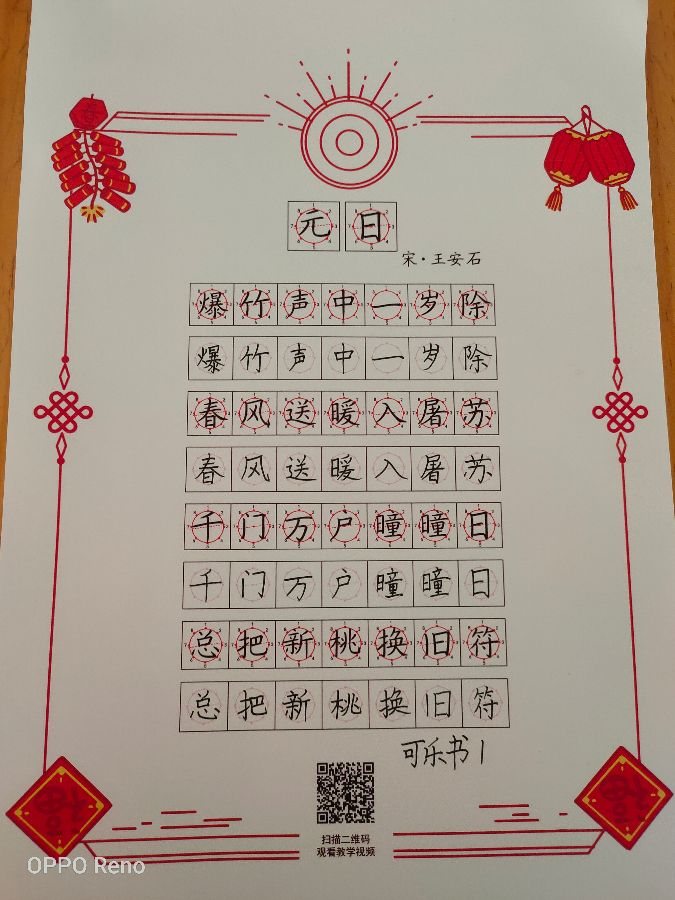 春
元日
宋·王安石
爆竹声中一岁除
爆竹声中一岁除
春风送暖入屠苏
春风送暖入屠苏
千门万户曈曈日
千门万户曈曈日
总把新桃换旧符
总把新桃换旧符
可乐书
福
福
扫描二维码
观看教学视频
OPPO Reno